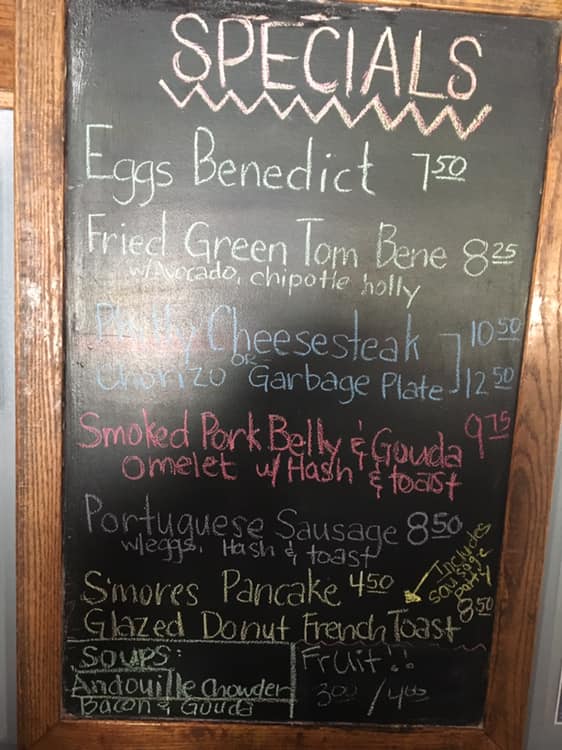 SPECIALS
Eggs Benedict 7.50
Fried Green Tom Bene 8.25
w/Avocado, chipotle holly
Philly Cheesesteak 10.50
OR
Chorizo Garbage Plate 12.50
Smoked Pork Belly & Gouda 9.75
omelet w/ Hash & toast
Portuguese Sausage 8.50
w/eggs, Hash & toast
S'mores Pancake 4.50
Includes sausage patty
Glazed Donut French Toast 8.50
Soups:
Andouille Chowder
Bacon & Gouda
Fruit!!
3.00 / 4.00